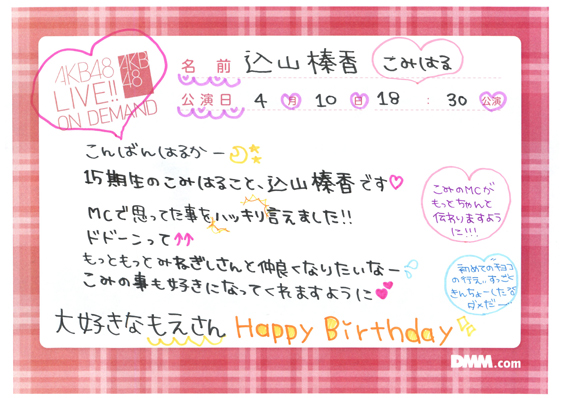 AKB48
LIVE!!
ON DEMAND
AKB
48
名前 込山榛香 こみはる
公演日 4月10日 18:30公演
こんばんはるかー
15期生のこみはること、込山榛香です♡
MCで思ってた事をハッキリ言えました!!
ドドーンって↑↑
もっともっとみねぎしさんと仲良くなりたいなー
こみの事も好きになってくれますように
大好きなもえさん Happy Birthday
こみのMCが
もっとちゃんと
伝わりますよう
に!!!
初めてのチョコ
の行え。すっごく
きんちょーした
ダメだー
DMM.com